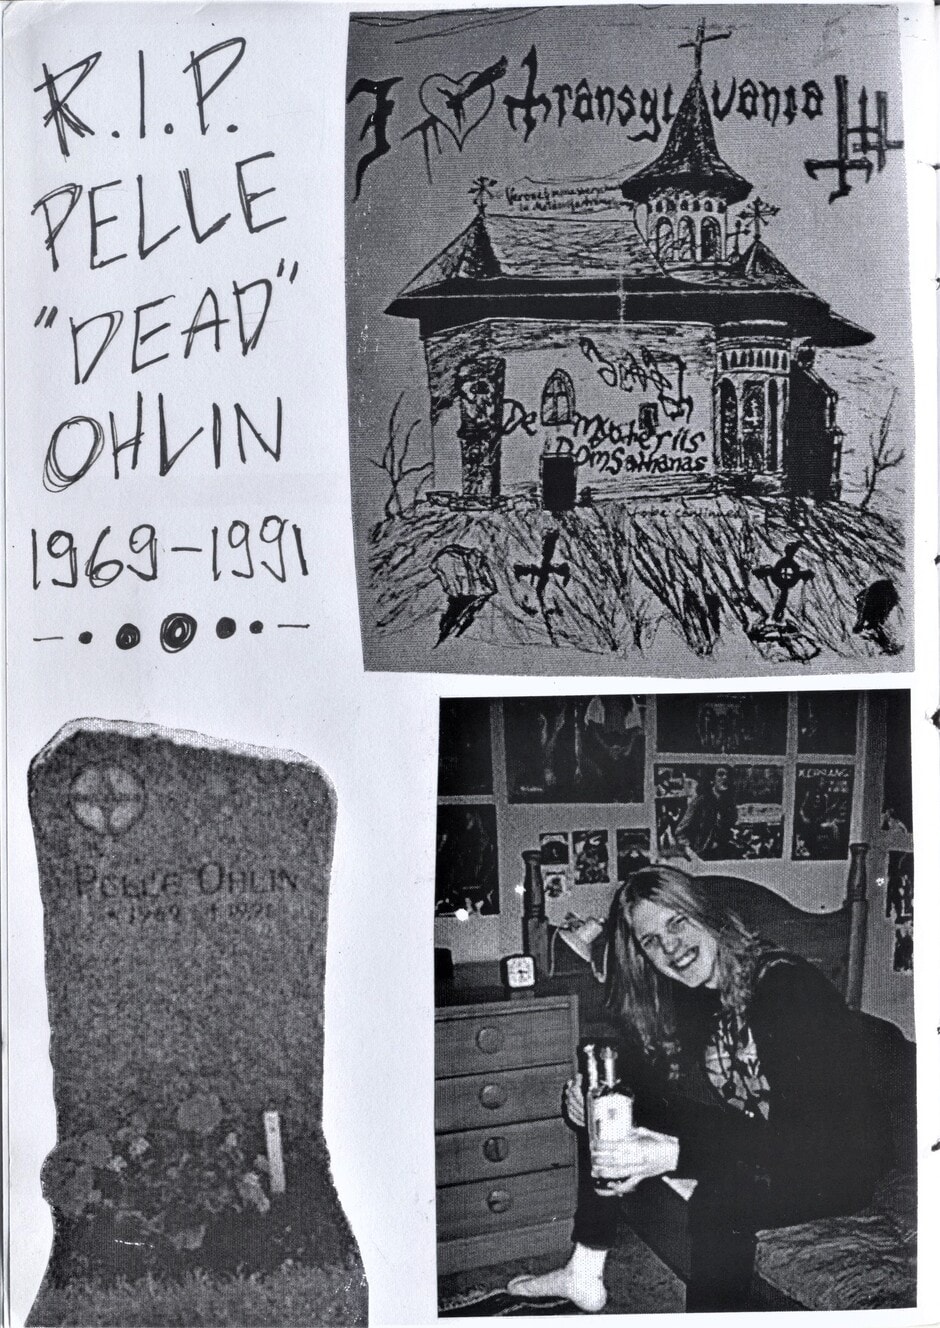 R.I.P.
PELLE
"DEAD"
OHLIN
1969-1991
I transylvania
De mysteriis
DOMSathanas
PELLE OHLIN
* 1969 † 1991
KERRANG